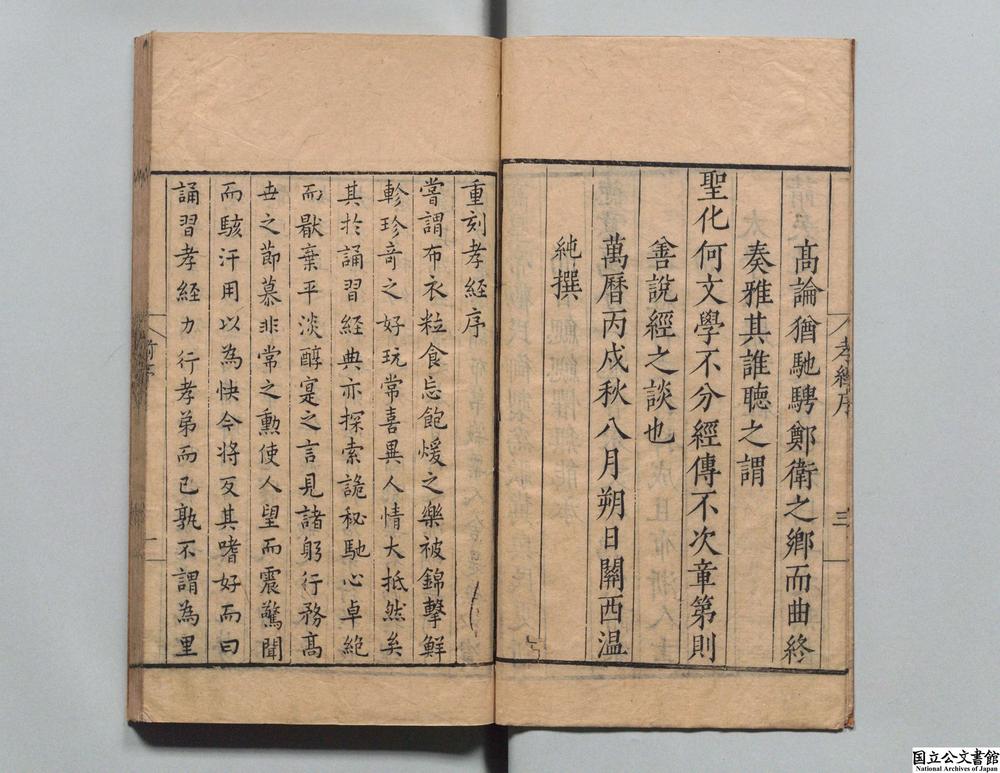 孝經序
三
高論猶馳騁鄭衛之鄉而曲終
奏雅其誰聽之謂
聖化何文學不分經傳不次章第則
善說經之談也
萬曆丙戌秋八月朔日關西温
純撰
重刻孝經序
嘗謂布衣粒食忘飽煖之樂被錦擊鮮
軫珍竒之好玩常喜異人情大抵然矣
其於誦習經典亦探索詭秘馳心卓絶
而厭棄平淡醇寔之言見諸躬行務高
世之節慕非常之勲使人望而震驚聞
而駭汗用以為快今將反其嗜好而曰
誦習孝經力行孝弟而已孰不謂為里
一
国立公文書館
National Archives of Japan